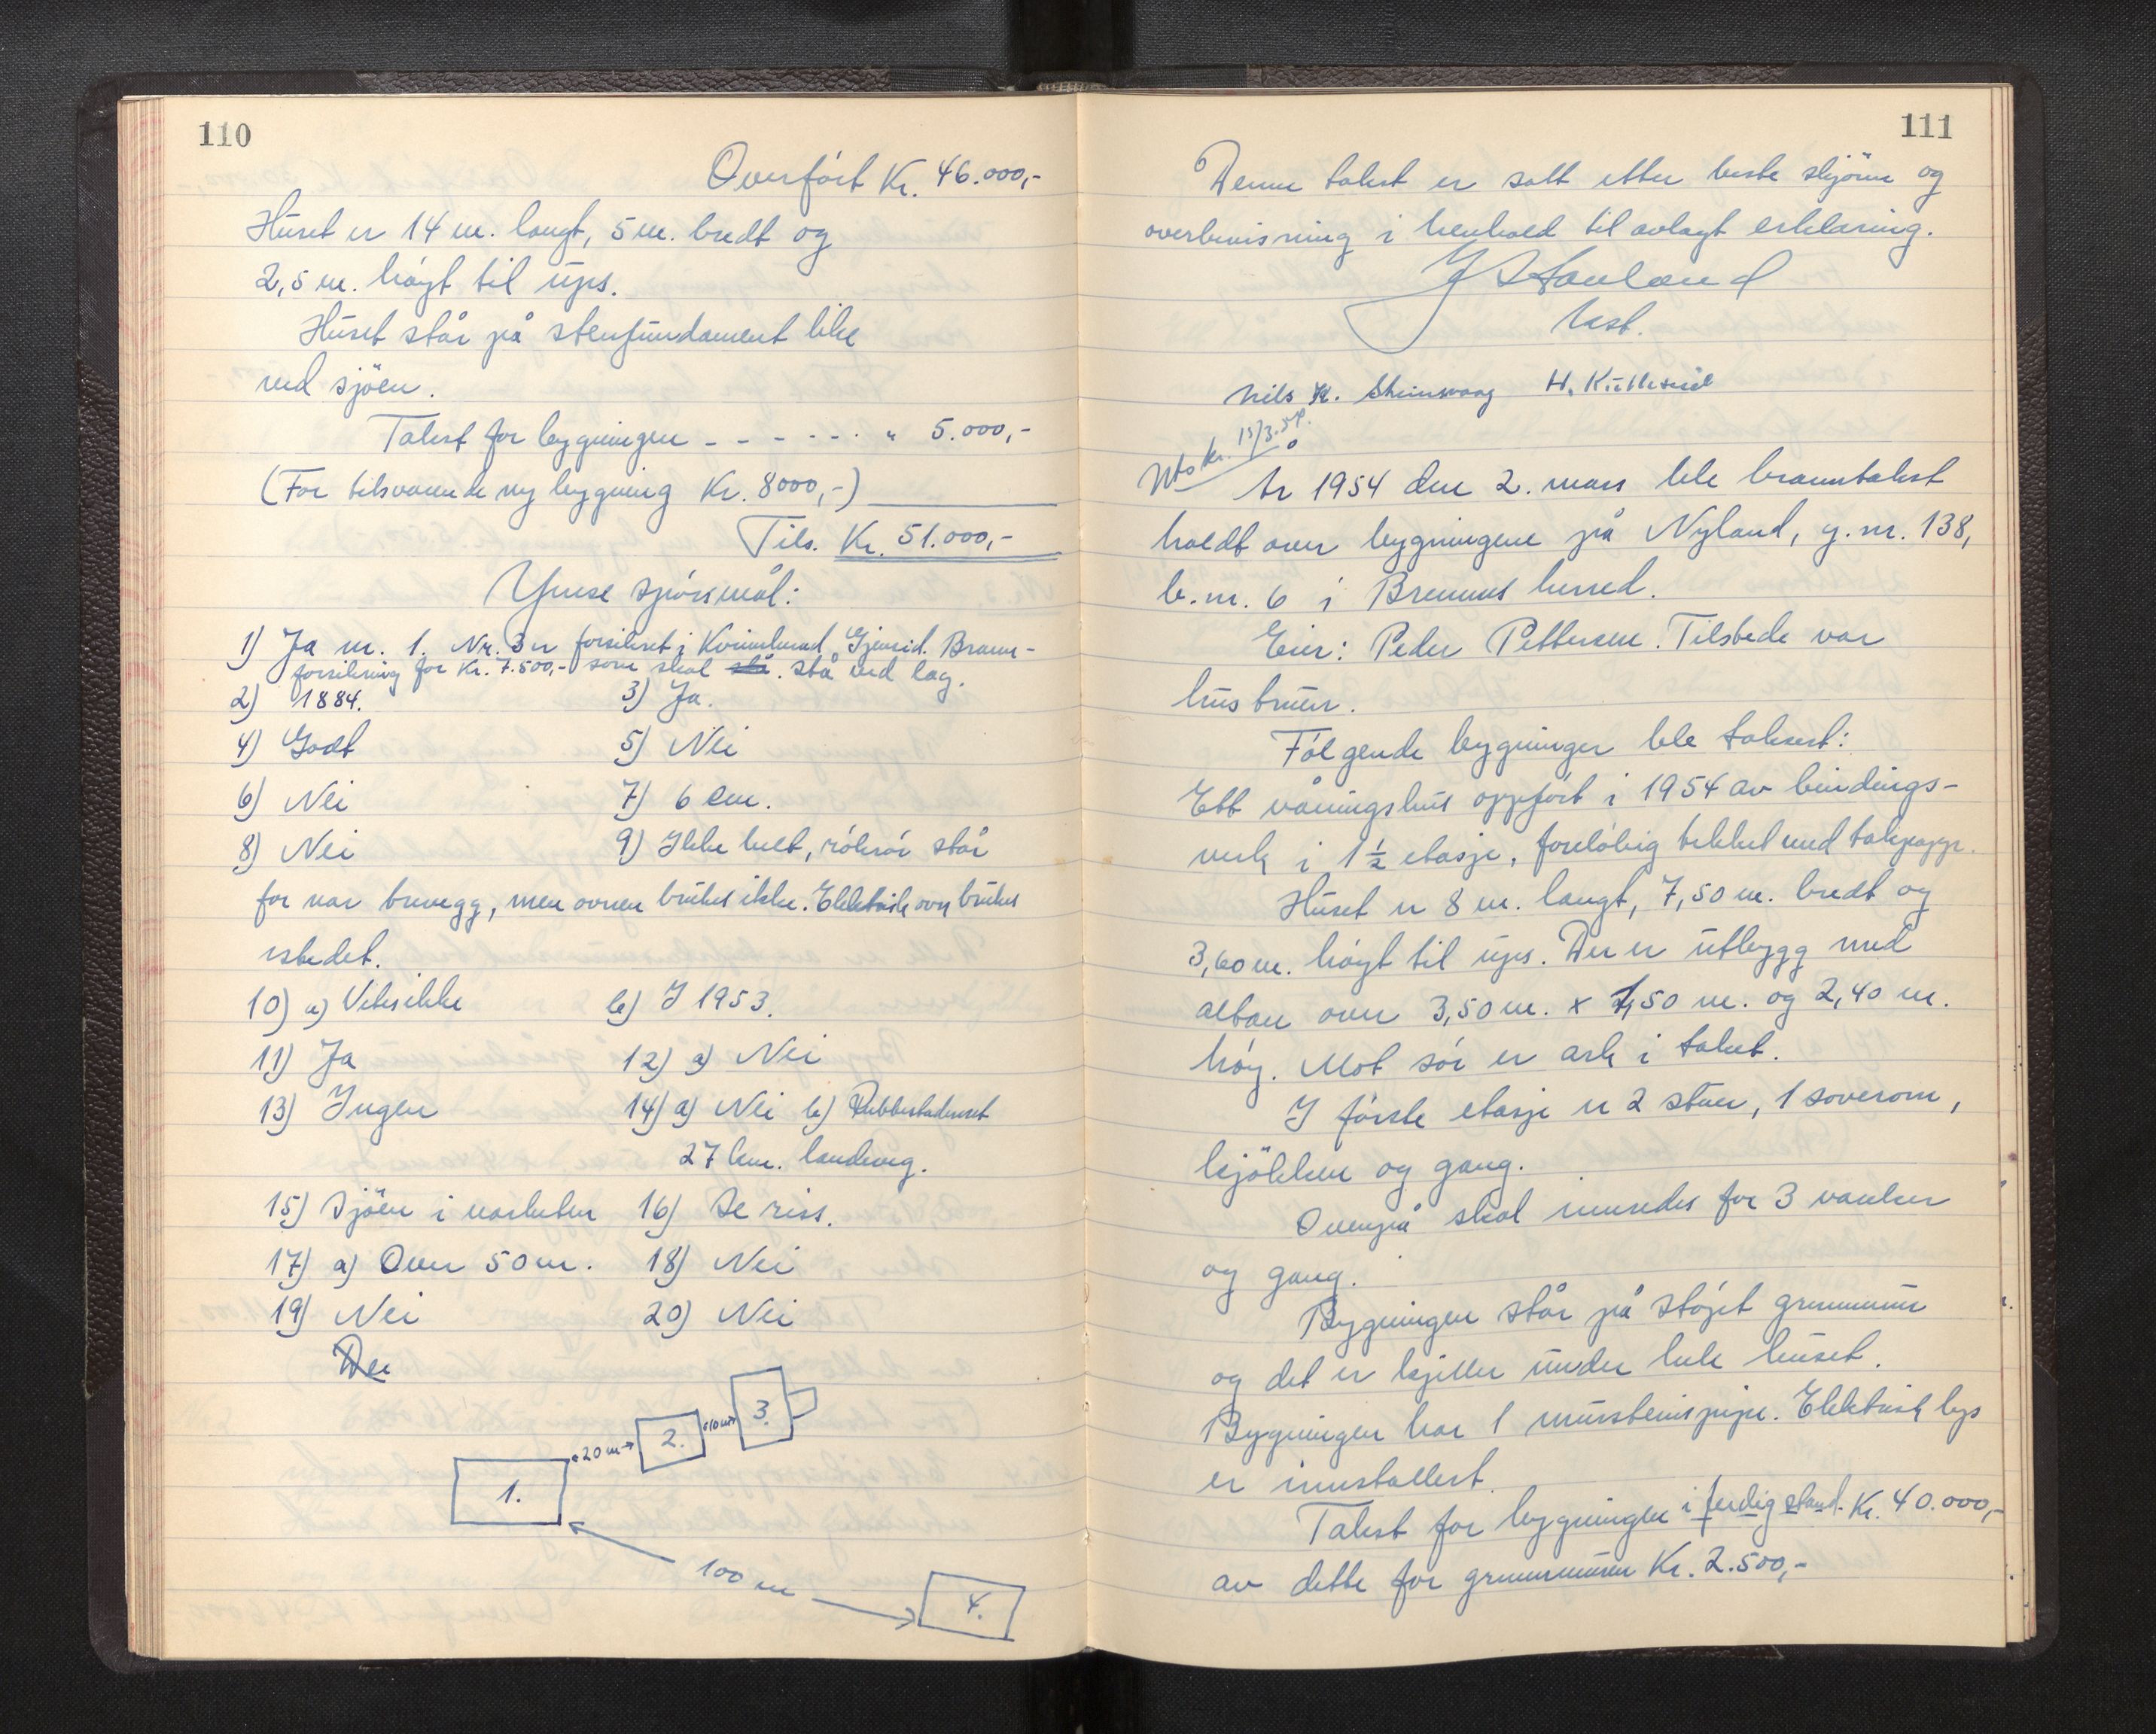 110
Overført Kr. 46.000,-
Huset er 14 m. langt, 5 m. bredt og
2,5 m. høyt til ups.
Huset står på stenfundament like
ved sjøen.
Takst for bygningen - - - - - - " 5.000,-
(For tilsvarende ny bygning Kr. 8000,-)
Tils. Kr. 51.000,-
Ymse spørsmål:
1) Ja nr. 1. Nr. 3 er forsikret i Kvinnherad Gjensid. Brann-
forsikring for Kr. 7.500,- som skal stå. stå ved lag.
2) 1884. 3) Ja.
4) Godt 5) Nei
6) Nei 7) 6 cm.
8) Nei 9) Ikke helt, rökrör står
for nær brevegg, men ovnen brukes ikke. Elektrisk ovn brukes
istedet.
10) a) Vites ikke b) I 1953.
11) Ja 12) a) Nei
13) Ingen 14) a) Nei b) Rubbestadneset
27 km. landeveg.
15) Sjøen i nærheten 16) Se riss.
17) a) Over 50 m. 18) Nei
19) Nei 20) Nei
Den
1. 20 m 2. 10 m 3.
100 m
4.
111
Denne takst er satt etter beste skjønn og
overbevisning i henhold til avlagt erklæring.
Hauland
lest.
Nils K. Steinsvaag H.
Uts. kr. 15/3.54.
År 1954 den 2. mars ble branntakst
holdt over bygningene på Nyland, g.nr. 138,
b.nr. 6 i Bremnes herred.
Eier: Peder Pettersen. Tilstede var
hustruen.
Følgende bygninger ble taksert:
Ett våningshus oppført i 1954 av bindings-
verk i 1½ etasje, foreløbig tekket med takpapp.
Huset er 8 m. langt, 7,50 m. bredt og
3,60 m. høyt til ups. Der er utbygg med
altan over 3,50 m. x 1,50 m. og 2,40 m.
høy. Mot sør er ark i taket.
I første etasje er 2 stuer, 1 soverom,
kjøkken og gang.
Ovenpå skal innredes for 3 værelser
og gang.
Bygningen står på støpt grunnmur
og det er kjeller under hele huset.
Bygningen har 1 mursteinspipe. Elektrisk lys
er innstallert.
Takst for bygningen i ferdig stand. Kr. 40.000,-
av dette for grunnmuren Kr. 2.500,-